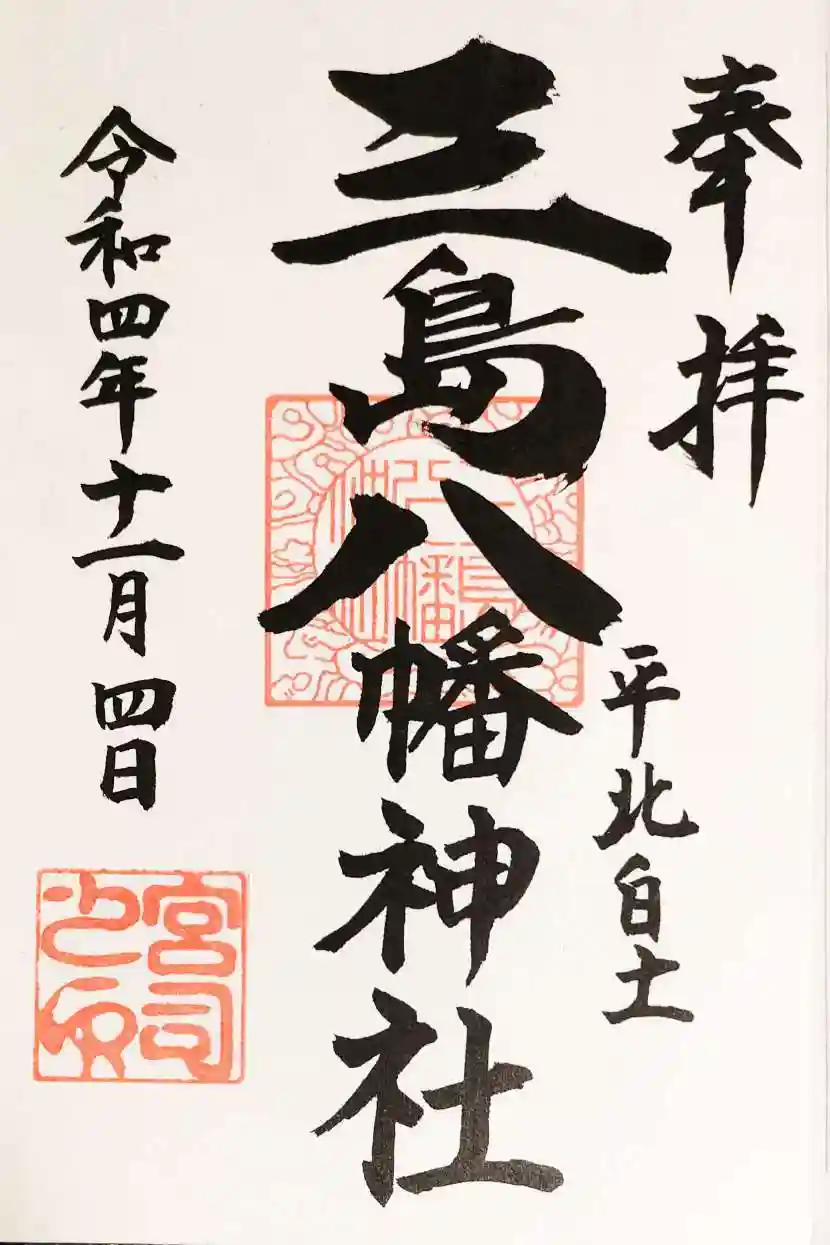 奉拝
平北白土
三島八幡神社
令和四年十一月四日
三島八幡神社
宮司之印